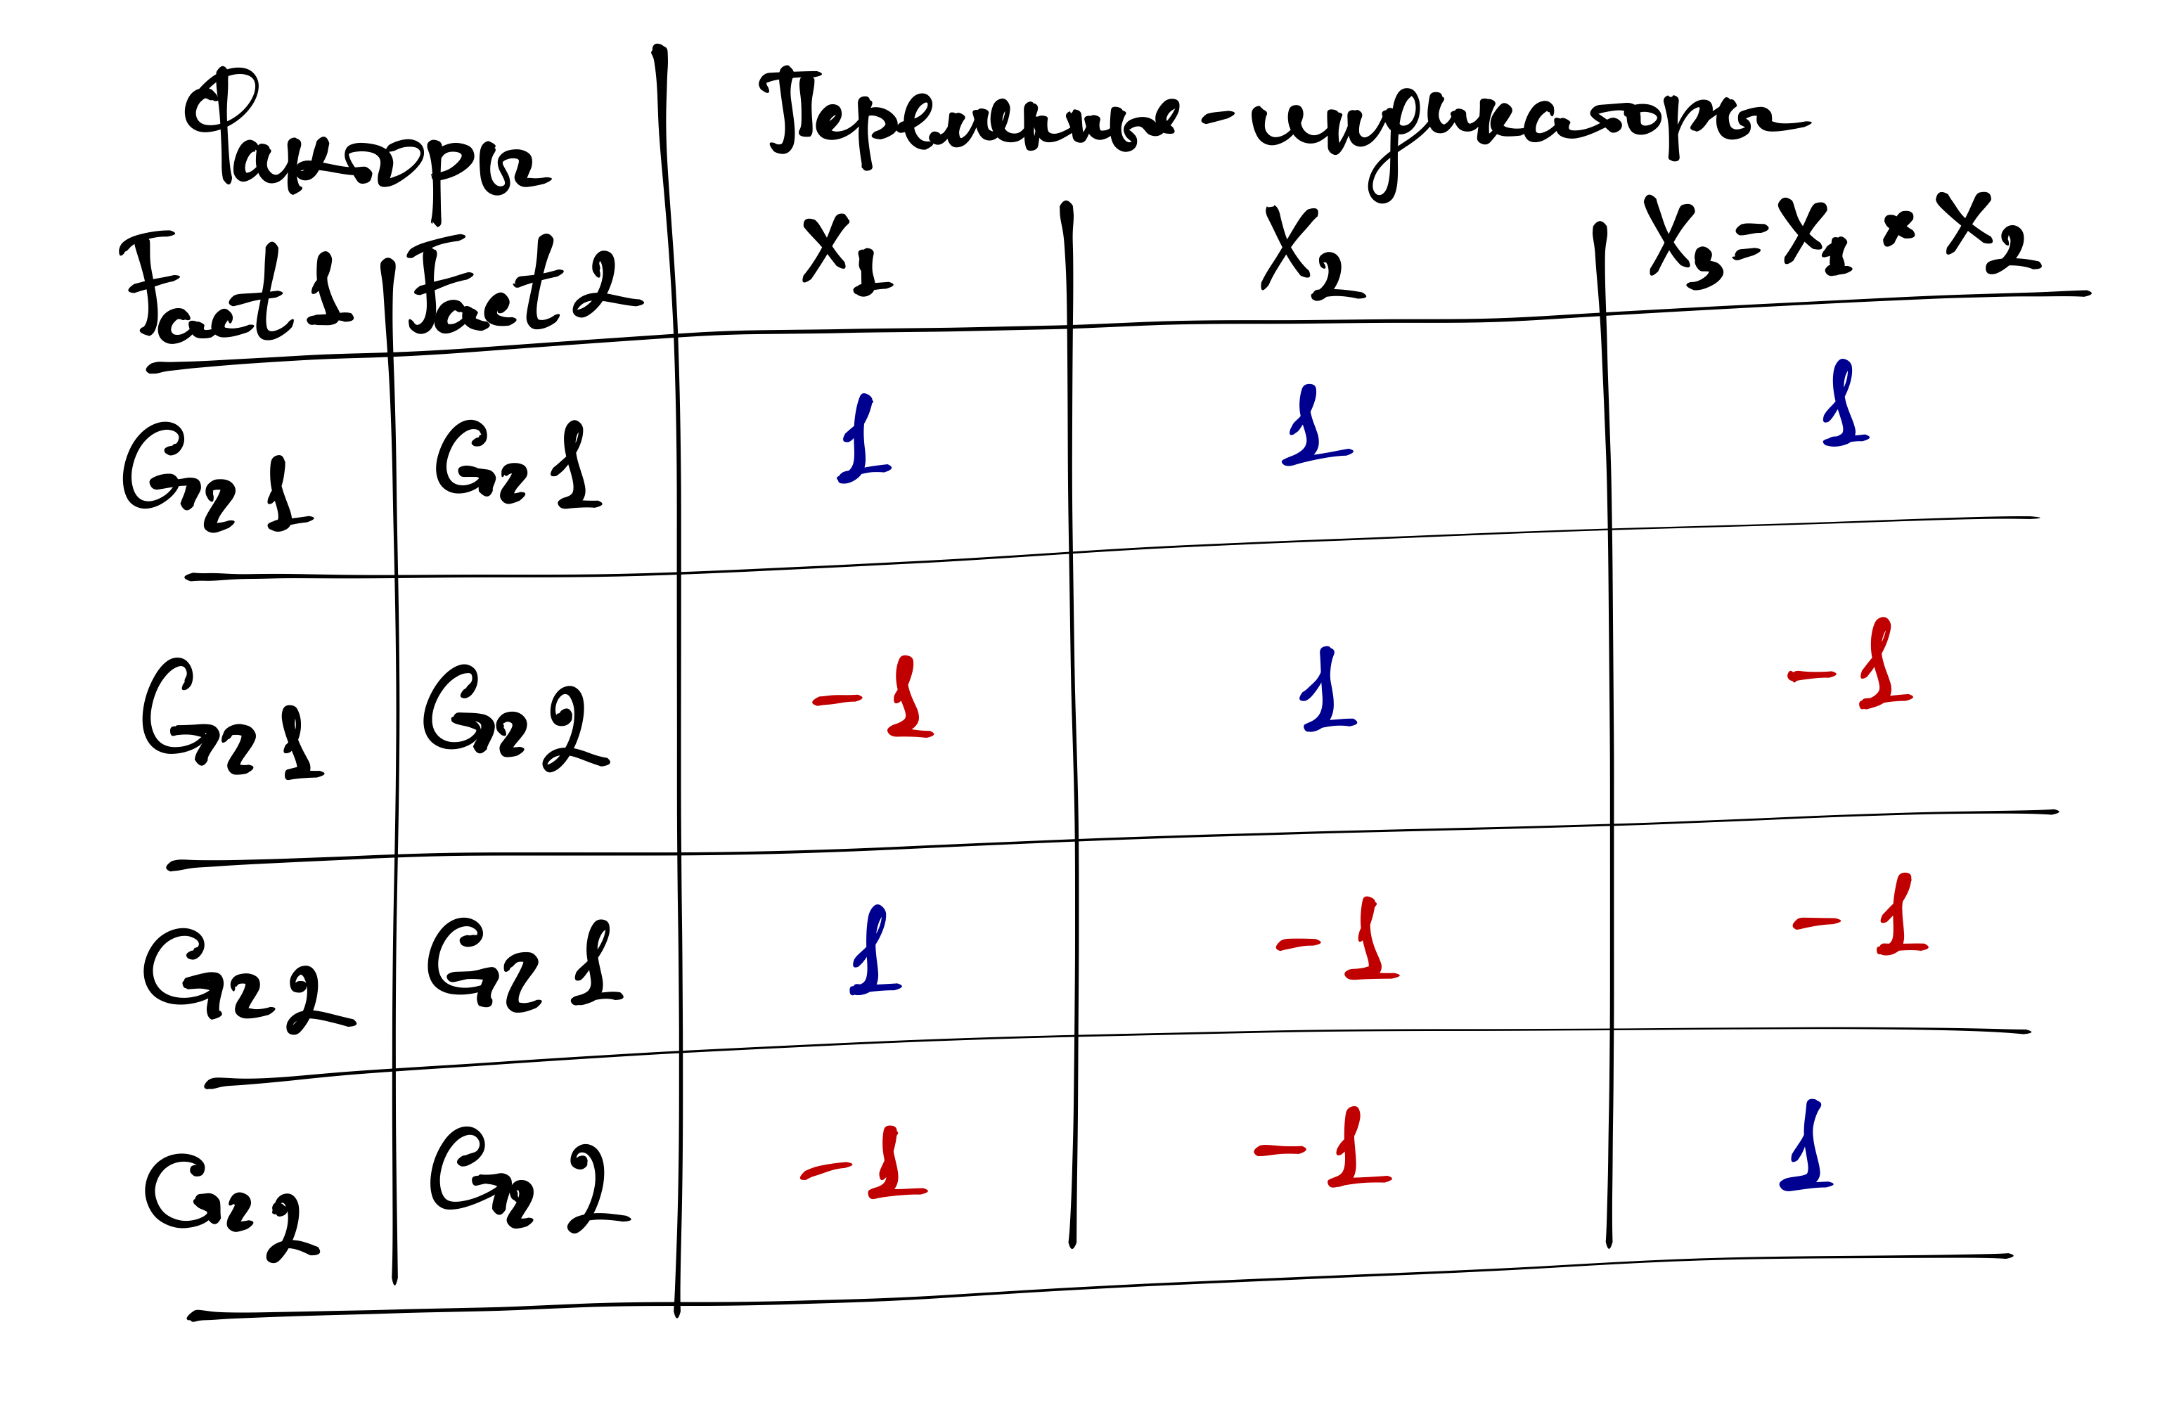 Факторы Переменные-индикаторы
Fact 1 Fact 2 X1 X2 X3 = X1 * X2
Gr 1 Gr 1 1 1 1
Gr 1 Gr 2 -1 1 -1
Gr 2 Gr 1 1 -1 -1
Gr 2 Gr 2 -1 -1 1